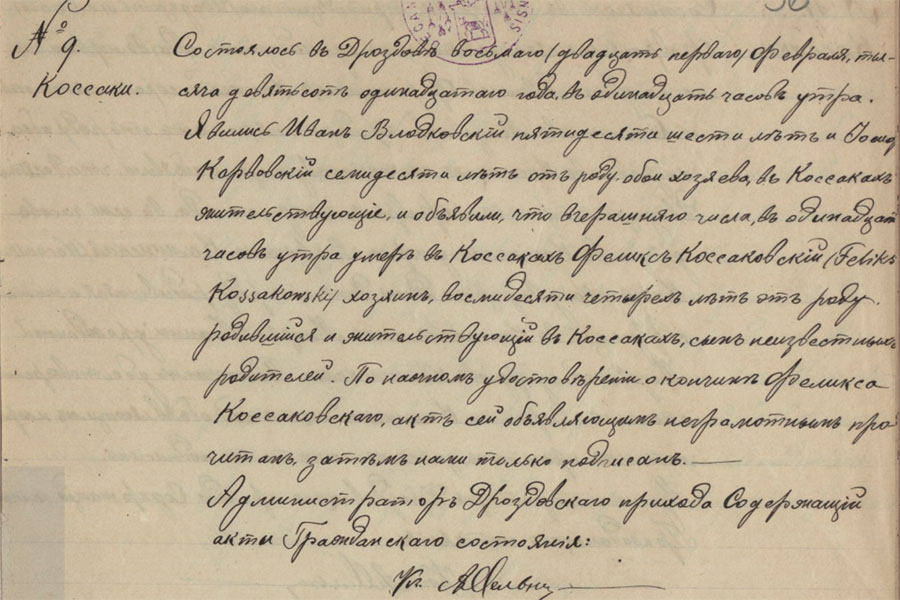 № 9.
Коссаки.
Состоялось въ Дроздовѣ восьмаго /двадцать перваго/ Февраля, ты-
сяча девятьсотъ одинадцатаго года, въ одинадцать часовъ утра.
Явились Иванъ Влодковскій пятидесяти шести лѣтъ и Іосиф
Карвовскій семидесяти лѣтъ отъ роду, обои хозяева, въ Коссакахъ
жительствующіе, и объявили, что вчерашняго числа, въ одинадцат
часовъ утра умеръ въ Коссакахъ Феликсъ Коссаковскій /Feliks
Kossakowski/ хозяинъ, восмидесяти четырехъ лѣтъ отъ роду.
родившійся и жительствующій въ Коссакахъ, сынъ неизвестныхъ
родителей. По наочномъ удостовѣреніи о кончинѣ Феликса
Коссаковскаго, актъ сей объявляющимъ неграмотнымъ про-
читанъ, затѣмъ нами только подписанъ. —
Администраторъ Дроздовскаго прихода Содержащій
акты Гражданскаго состоянія:
Кс.